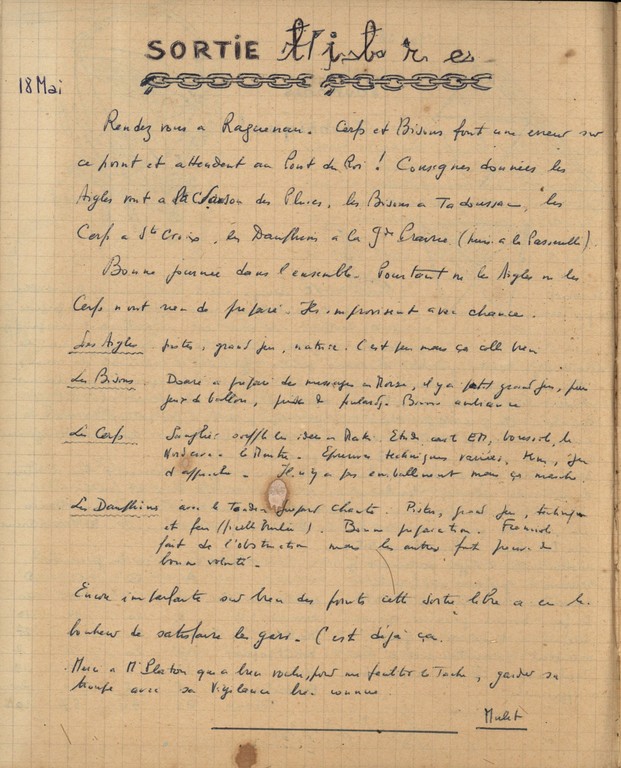 SORTIE libre
18 Mai
Rendez vous a Ragueneau. Cerfs et Bisons font une erreur sur
ce point et attendent au Pont du Roi ! Consignes données les
Aigles vont a des Pluies, les Bisons a Tadoussac, les
Cerfs a Ste Croix, les Dauphins à la
Bonne journée dans l'ensemble. Pourtant ni les Aigles ni les
Cerfs n'ont rien de préparé. Ils improvisent avec chance.
Les Aigles pistes, grand jeu, nature. C'est peu mais ça colle bien
Les Bisons. a préparé des messages en Morse, il y a petit grand jeu, puis
jeux de ballon, Bonne ambiance
Les Cerfs Sanglier souffle les idées a Etude carte EM, boussole, le
Epreuves techniques variées,
d'approche. Il n'y a pas emballement mais ça marche.
Les Dauphins avec le Chante. Pistes, grand jeu, technique
et feu Bonne préparation.
fait de l'obstruction mais les autres font preuve de
bonne volonté.
Encore imparfaite sur bien des points cette sortie libre a eu le
bonheur de satisfaire les gars. C'est déjà ça.
Merci a Mr Platon qui a bien voulu, pour me faciliter la tache, garder sa
troupe avec sa vigilance bien connue.
Mulet